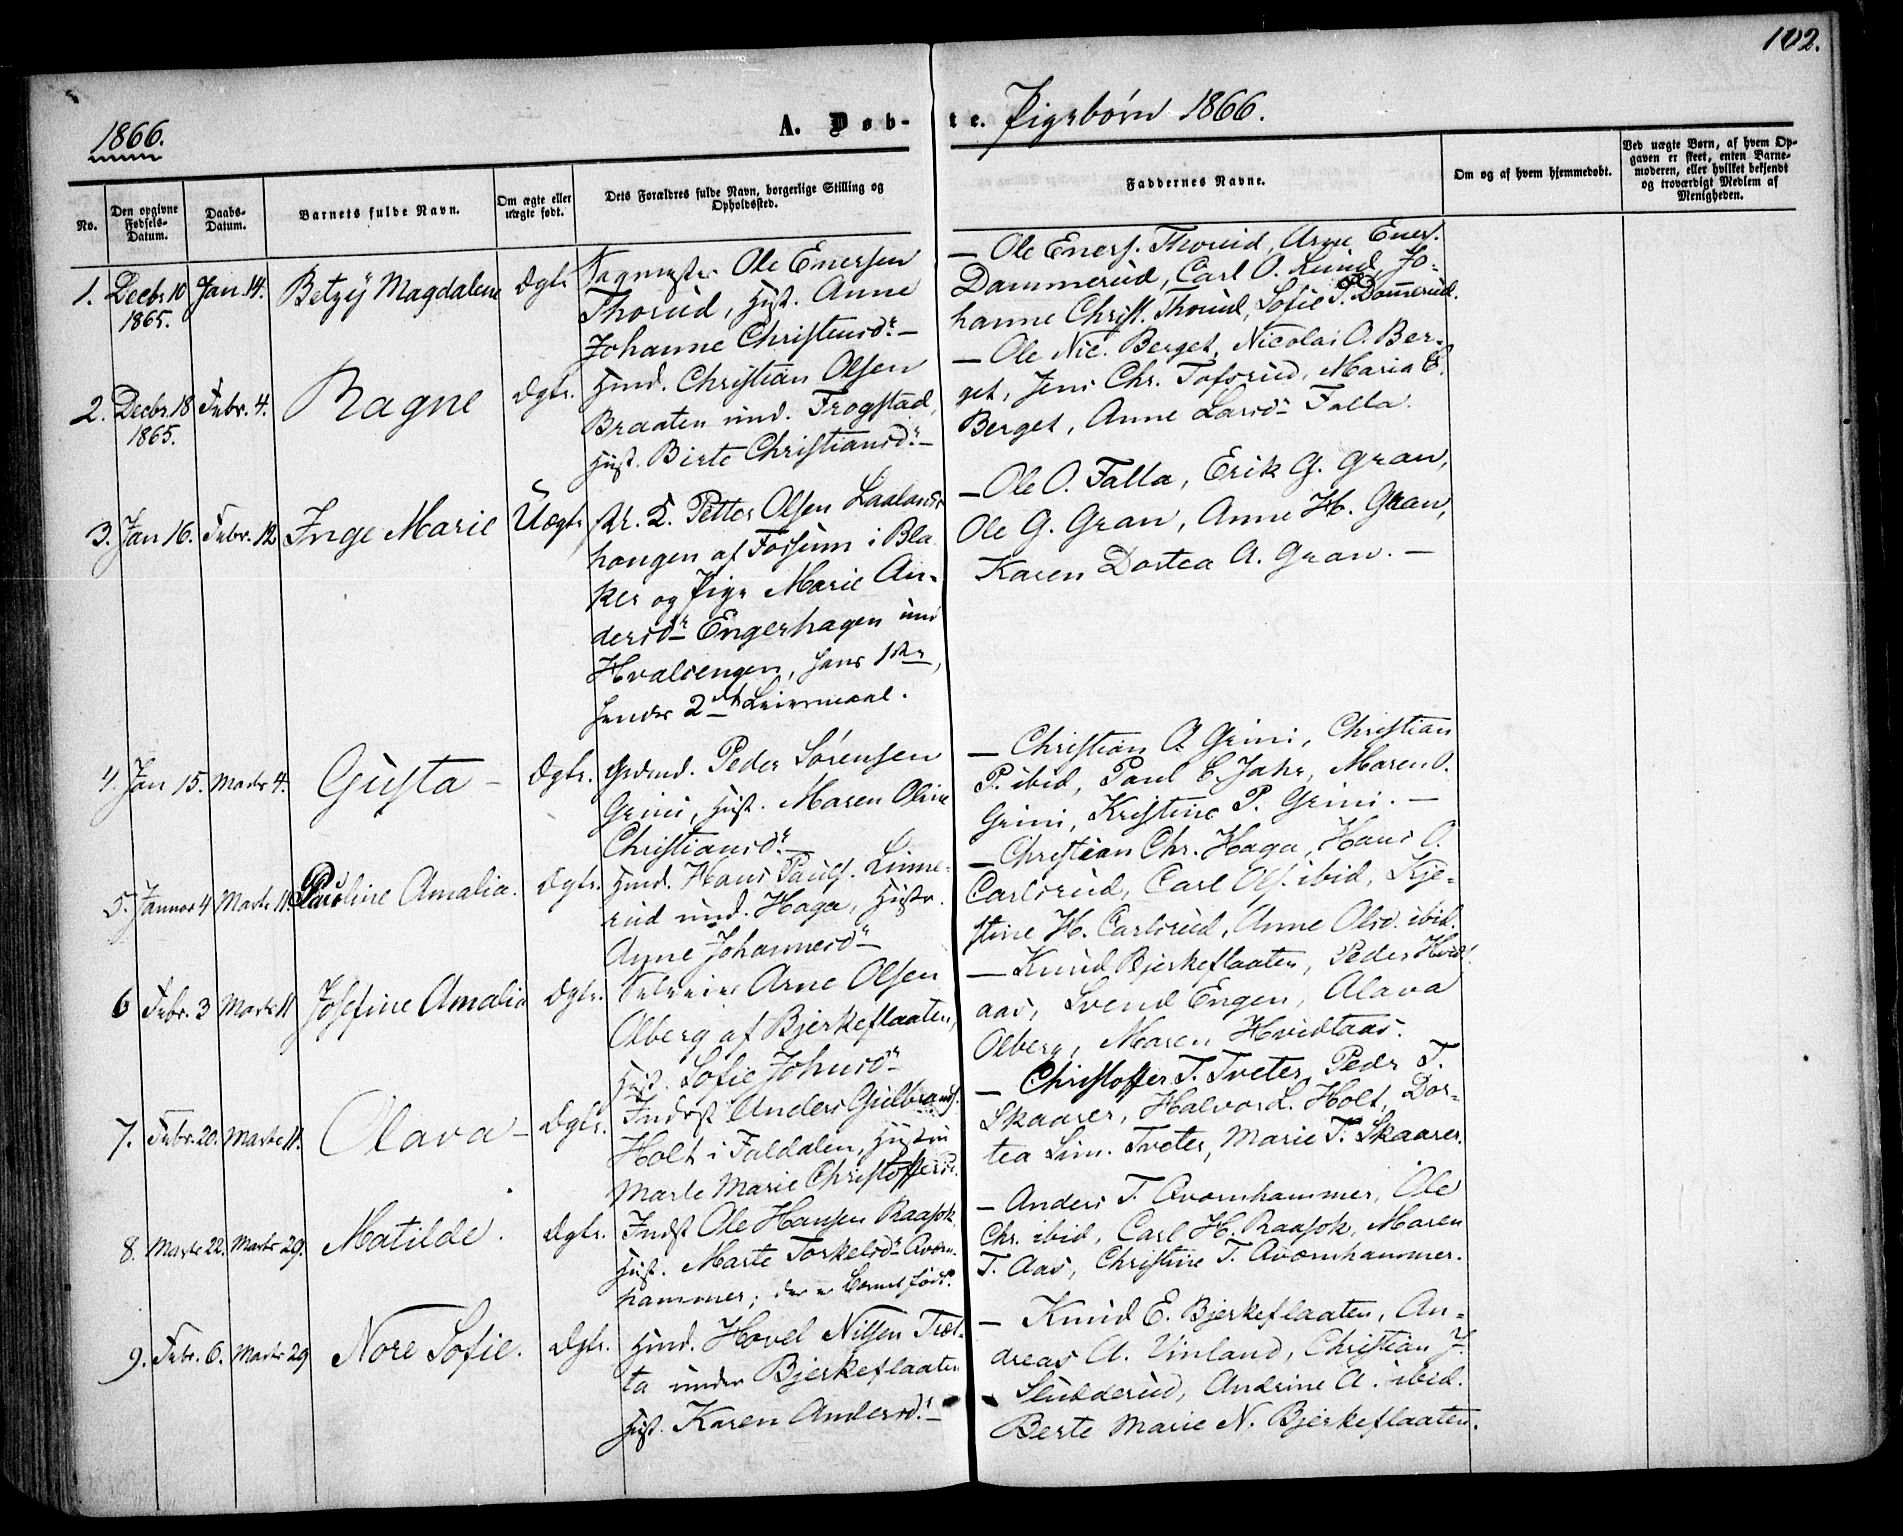 102.
1866.
A. Døb-te. Pigebørn 1866.
No.
Den opgivne Fødsels-Datum.
Daabs-Datum.
Barnets fulde Navn.
Om ægte eller uægte født.
Dets Forældres fulde Navn, borgerlige Stilling og Opholdssted.
Faddernes Navne.
Om og af hvem hjemmedøbt.
Ved uægte Børn, af hvem Opgaven er skeet, enten Barnemoderen, eller hvilket bekjendt og troværdigt Medlem af Menigheden.
1. Decbr. 10 1865. Jan. 14. Betzÿ Magdalene Ægte
Ole Enersen
Thorud, Hust. Anne
Johanne Christensdr. –
– Ole Eners. Thorud, Arne Eners.
Dammerud, Carl O. Lund, Jo-
hanne Christ. Thorud, Sofie P. Dammerud.
2. Decbr. 18 1865. Febr. 4. Ragne Ægte.
Husmd. Christian Olsen
Braaten und. Frogstad,
Hust. Birte Christiansdr. –
– Ole Nic. Berget, Nicolai O. Ber-
get, Jens Chr. Tofsrud, Maria E.
Berget, Anne Larsdr Falla.
3. Jan 16. Febr. 12 Inge Marie Uægte
Petter Olsen Laaland
hougen af Fossum i Bla
ker og Pige Marie An-
dersdr Engerhagen und
Hvalsengen, hans 1ste,
hendes 2det Leiermaal.
– Ole O. Falla, Erik G. Gran,
Ole G. Gran, Anne H. Gran,
Karen Dortea A. Gran. –
4. Jan 15. Marts 4. Gusta – Ægte.
Grdmd. Peder Sørensen
Grini, Hust. Maren Oline
Christiansdr. –
– Christian A. Grini, Christian
P. ibid, Paul C. Jahr, Maren O.
Grini, Kristine P. Grini. –
5. Januar 4 Marts 11. Pauline Amalia. Ægte.
Husmd. Hans Pauls. Linne-
rud und. Haga, Hustr.
Anne Johannesdr
– Christian Chr. Haga, Hans O.
Carlsrud, Carl Ols. ibid, Kje-
stine H. Carlsrud, Anne Olsd. ibid.
6 Febr. 3 Marts 11 Josefine Amalia Ægte.
Arne Olsen
Olberg af Bjerkeflaaten,
Hust. Sofie Johnsdr
– Knud Bjerkeflaaten, Peder Hvidt
aas, Svend Engen, Olava
Olberg, Maren Hvidtaas.
7. Febr. 20. Marts 11. Olava – Ægte.
Inderst Anders Gulbrands.
Holt i Faldalen, Hustru
Marte Marie Christoffersd.
– Christoffer T. Tveter, Peder T.
Skaarer, Halvor L. Holt, Dor-
tea Sim. Tveter, Marie T. Skaarer.
8. Marts 22. Marts 29. Matilde. Ægte.
Inderst Ole Hansen Raasok
Hust. Marte Torkelsdr Avorn-
hammer; der er Barnet født.
– Anders T. Avornhammer, Ole
Chr. ibid, Carl H. Raasok, Maren
T. Aas, Christine T. Avornhammer.
9. Febr. 6. Marts 29 Nore Sofie. Ægte.
Husmd. Hovel Nilsen Træt-
ta under Bjerkeflaaten
Hust. Karen Andersd. –
– Knud E. Bjerkeflaaten, An-
dreas A. Vinland, Christian J.
Slubberud, Andrine A. ibid.
Berte Marie N. Bjerkeflaaten.